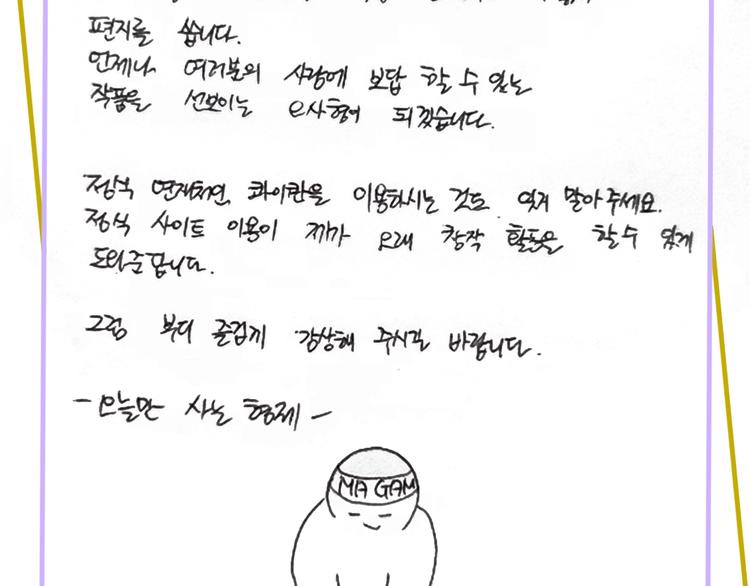 편지를 씁니다.
언제나 여러분의 사랑에 보답 할 수 있는
작품을 선보이는 오사형이 되겠습니다.
정식 연재처인, 콰이칸을 이용하시는 것도 잊지 말아주세요.
정식 사이트 이용이 제가 오래 창작 활동을 할 수 있게
도와준답니다.
그럼 부디 즐겁게 감상해 주시길 바랍니다.
- 오늘만 사는 형제 -
MA GAM